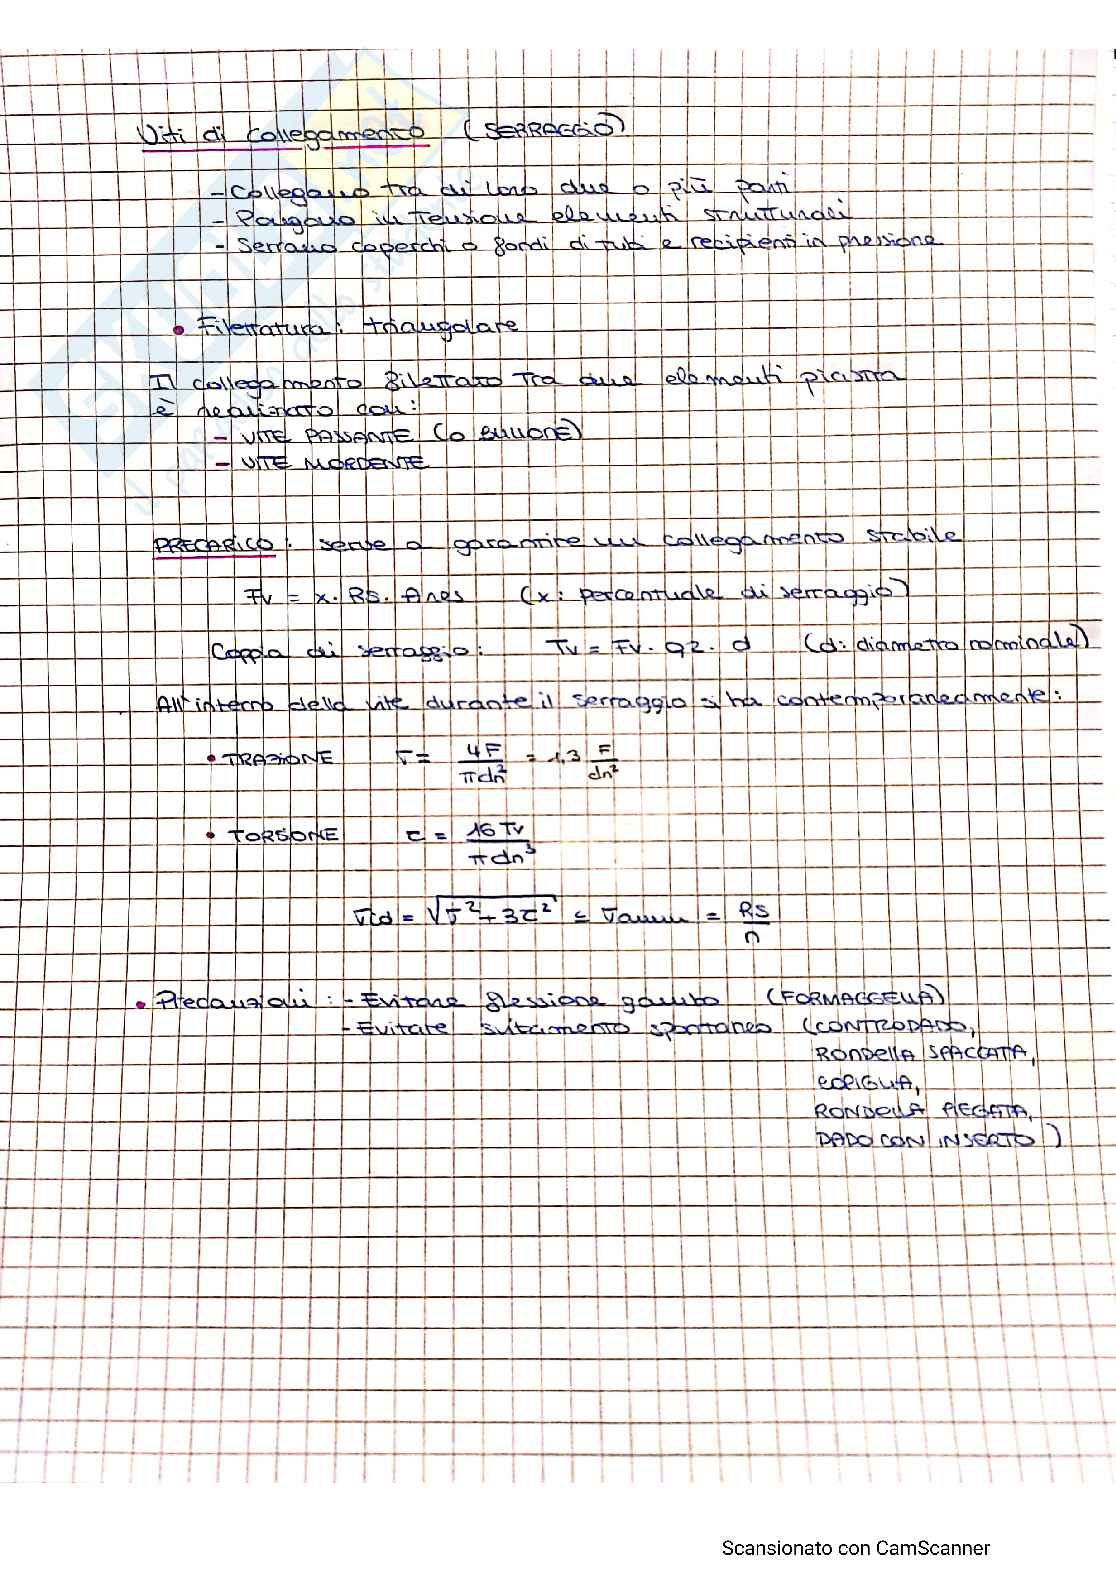 Viti di collegamento (SERRAGGIO)
- Collegano tra di loro due o più parti
- Pongono in tensione elementi strutturali
- Serrano coperchi o fondi di tubi e recipienti in pressione
• Filettatura: triangolare
Il collegamento filettato tra due elementi piastra
è realizzato con:
- VITE PASSANTE (O BULLONE)
- VITE MORDENTE
PRECARICO: serve a garantire un collegamento stabile
Fv = x. Rs. Ares (x: percentuale di serraggio)
Coppia di serraggio: Tv = Fv. 0,2. d (d: diametro nominale)
All'interno della vite durante il serraggio si ha contemporaneamente:
• TRAZIONE σ = 4F/πdn² = 1,3 F/dn²
• TORSIONE τ = 16Tv/πdn³
σid = √σ²+3τ² ≤ σamm = Rs/n
• Precauzioni: - Evitare flessione gambo (FORMAGGELLA)
- Evitare svitamento spontaneo (CONTRODADO,
RONDELLA SPACCATA,
COPIGLIA,
RONDELLA PIEGATA,
DADO CON INSERTO)
Scansionato con CamScanner